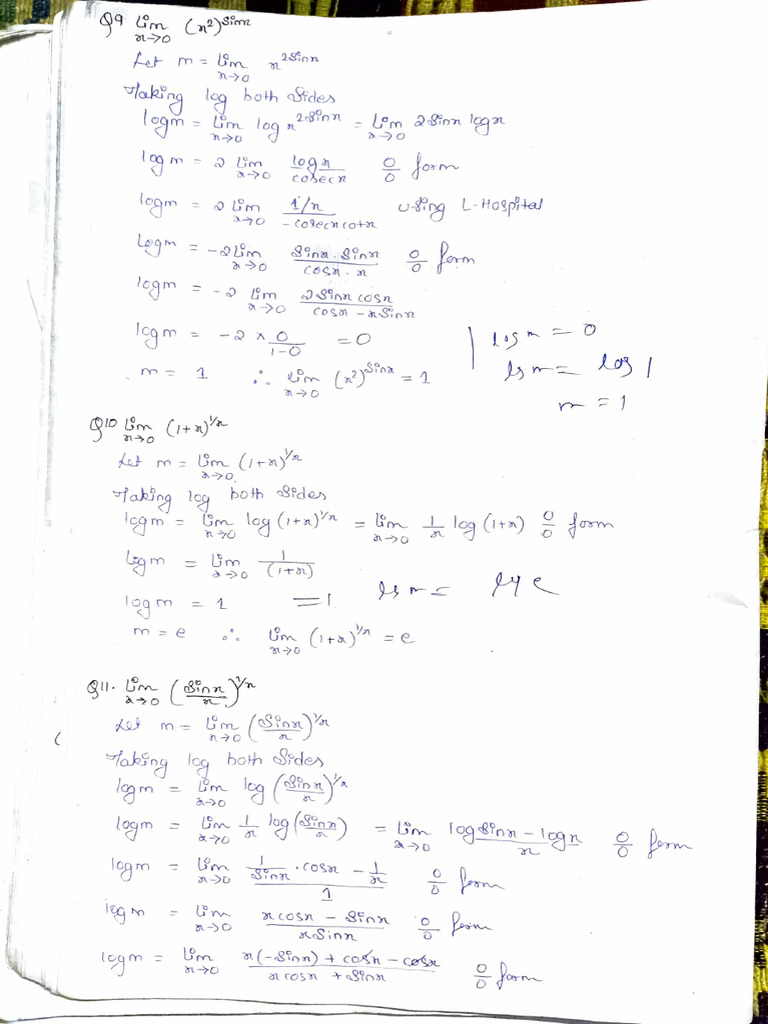 Q9 Lim x→0 (x²)^sinx
Let m = Lim x→0 x^2sinx
Taking log both sides
logm = Lim x→0 log x^2sinx = Lim x→0 2sinx logx
logm = 2 Lim x→0 logx/cosecx 0/0 form
logm = 2 Lim x→0 (1/x)/(-cosecx cotx) using L-Hospital
logm = -2 Lim x→0 (sinx·sinx)/(cosx·x) 0/0 form
logm = -2 Lim x→0 (2sinx cosx)/(cosx - xsinx)
logm = -2 × 0/(1-0) = 0
m = 1 ∴ Lim x→0 (x²)^sinx = 1
log m = 0
log m = log 1
m = 1
Q10 Lim x→0 (1+x)^1/x
Let m = Lim x→0 (1+x)^1/x
Taking log both sides
logm = Lim x→0 log(1+x)^1/x = Lim x→0 1/x log(1+x) 0/0 form
logm = Lim x→0 1/(1+x)
logm = 1 = 1 log m = log e
m = e ∴ Lim x→0 (1+x)^1/x = e
Q11. Lim x→0 (sinx/x)^1/x
Let m = Lim x→0 (sinx/x)^1/x
Taking log both sides
logm = Lim x→0 log(sinx/x)^1/x
logm = Lim x→0 1/x log(sinx/x) = Lim x→0 (logsinx - logx)/x 0/0 form
logm = Lim x→0 (1/sinx · cosx - 1/x)/1 0/0 form
logm = Lim x→0 (xcosx - sinx)/(xsinx) 0/0 form
logm = Lim x→0 (x(-sinx) + cosx - cosx)/(xcosx + sinx) 0/0 form